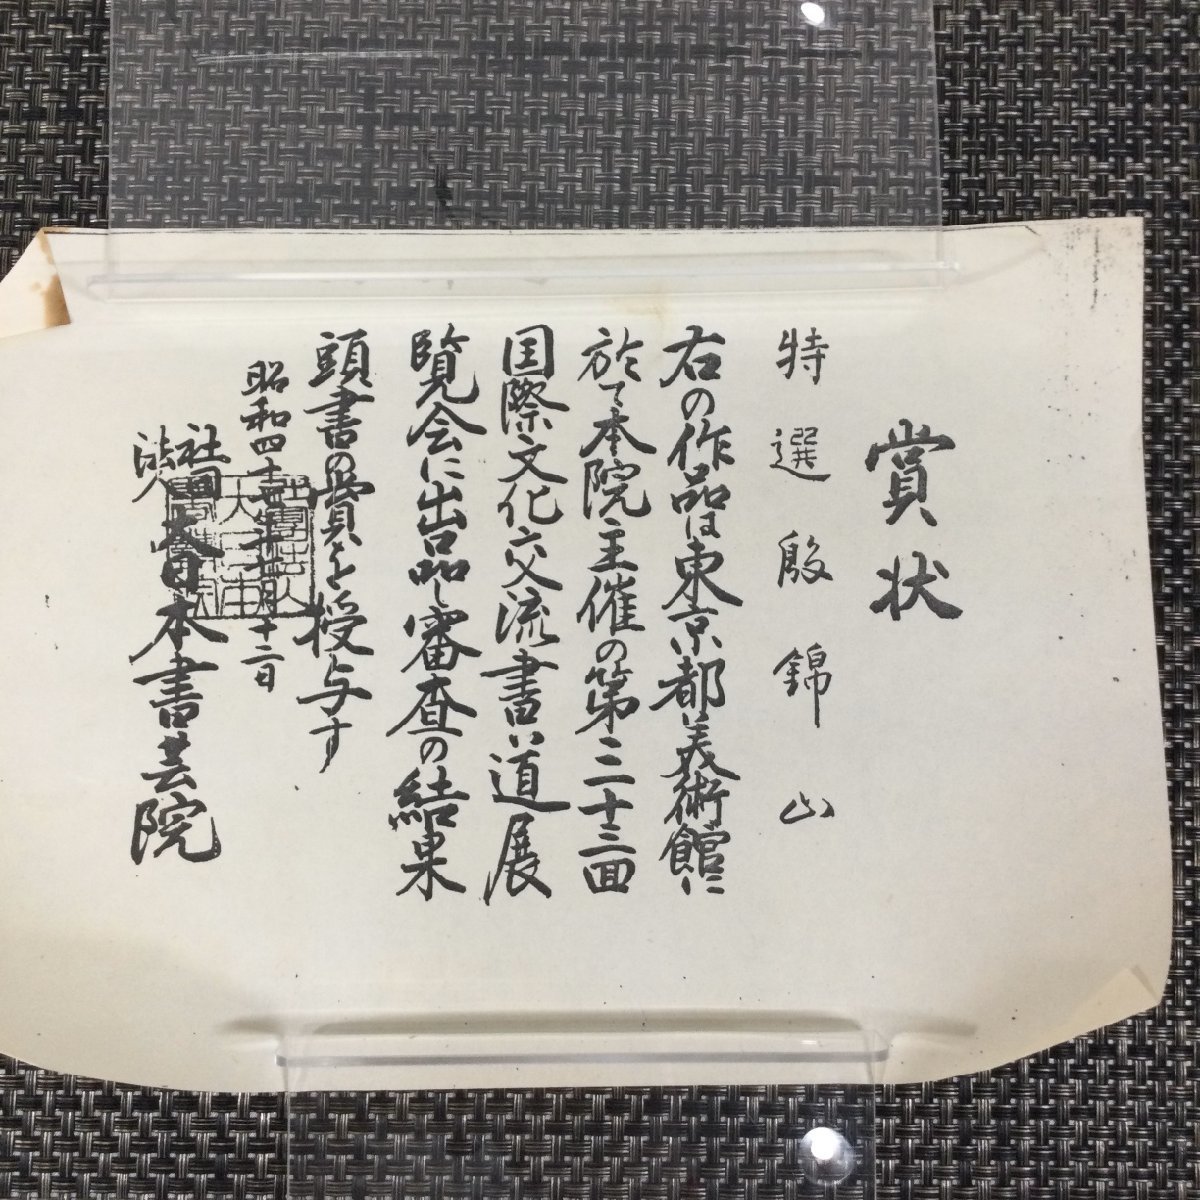 賞状
特選 殷錦山
右の作品は東京都美術館に
於て本院主催の第三十三回
国際文化交流書道展
覧会に出品し審査の結果
頭書の賞を授与す
昭和四十 年 月十二日
社団
法人 大日本書芸院